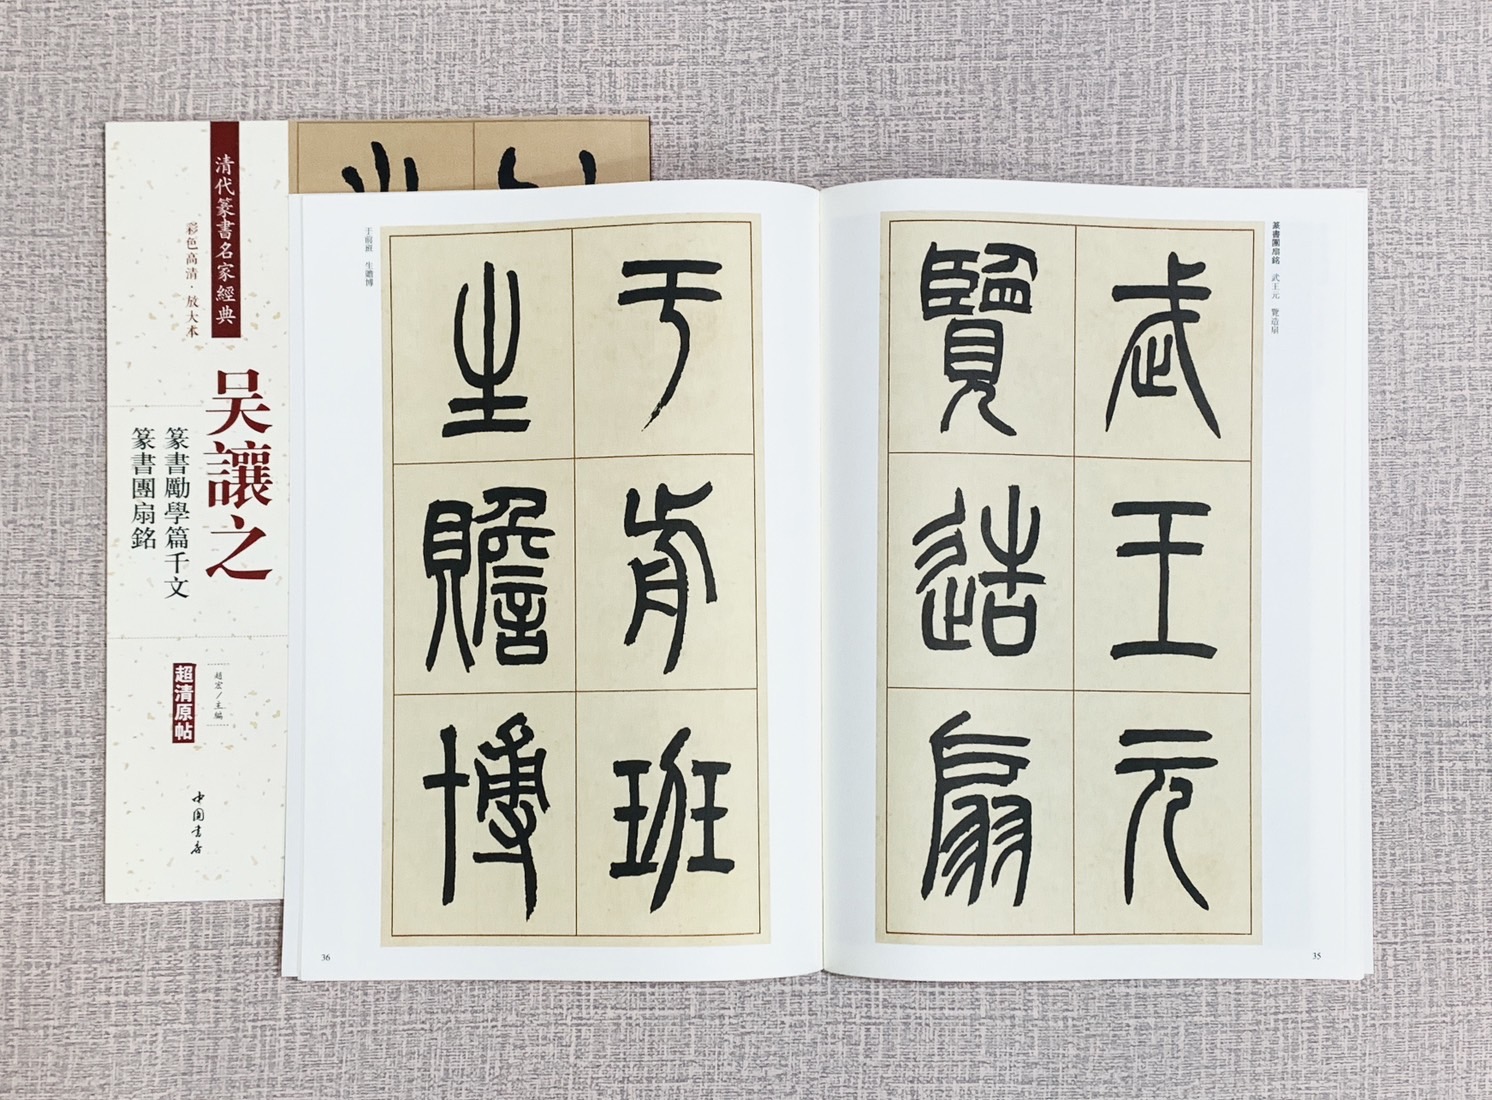 清代篆書名家經典
彩色高清·放大本
吴讓之
篆書勵學篇千文
篆書團扇銘
趙宏/主編
超清原帖
中国书店
篆書團扇銘 武王元 覽造扇
武王元
覽造扇
35
于前班 生贍博
于前班
生贍博
36